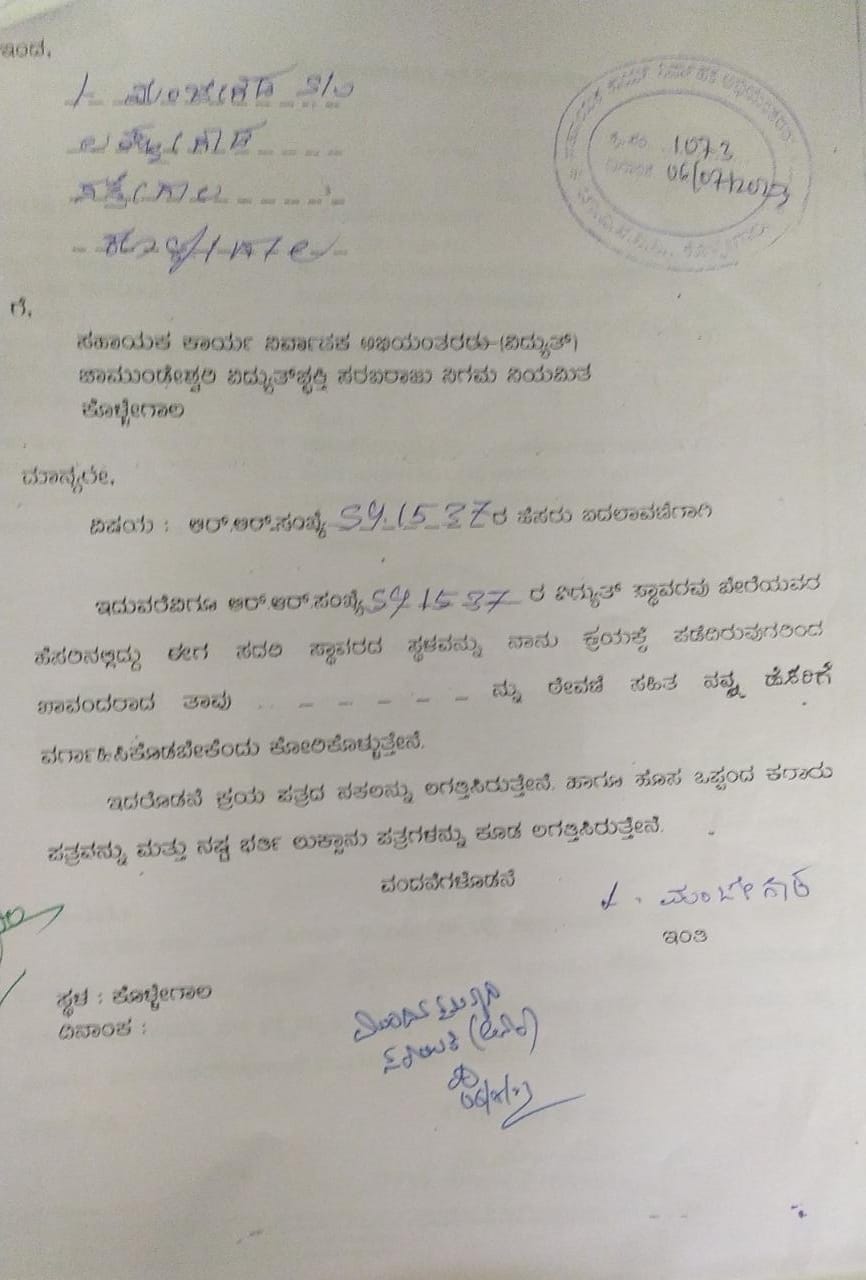 ಇಂದ,
ಮಂಜೇಗೌಡ S/o
ಕ್ರ.ಸಂ. 1073
ದಿನಾಂಕ 06/07/2023
ಗೆ,
ಸಹಾಯಕ ಕಾರ್ಯ ನಿರ್ವಾಹಕ ಅಭಿಯಂತರರು (ವಿದ್ಯುತ್)
ಚಾಮುಂಡೇಶ್ವರಿ ವಿದ್ಯುತ್‌ಚ್ಛಕ್ತಿ ಸರಬರಾಜು ನಿಗಮ ನಿಯಮಿತ
ಕೊಳ್ಳೇಗಾಲ
ಮಾನ್ಯರೇ,
ವಿಷಯ : ಆರ್.ಆರ್.ಸಂಖ್ಯೆ S91537 ರ ಹೆಸರು ಬದಲಾವಣೆಗಾಗಿ
ಇದುವರೆವಿಗೂ ಆರ್.ಆರ್.ಸಂಖ್ಯೆ S91537 ರ ವಿದ್ಯುತ್ ಸ್ಥಾವರವು ಬೇರೆಯವರ
ಹೆಸರಿನಲ್ಲಿದ್ದು ಈಗ ಸದರಿ ಸ್ಥಾವರದ ಸ್ಥಳವನ್ನು ನಾನು ಕ್ರಯಕ್ಕೆ ಪಡೆದಿರುವುದರಿಂದ
ಖಾವಂದರಾದ ತಾವು _ _ _ _ _ _ _ ನ್ನು ಠೇವಣಿ ಸಹಿತ ನನ್ನ ಹೆಸರಿಗೆ
ವರ್ಗಾಹಿಸಿಕೊಡಬೇಕೆಂದು ಕೋರಿಕೊಳ್ಳುತ್ತೇನೆ.
ಇದರೊಡನೆ ಕ್ರಯ ಪತ್ರದ ನಕಲನ್ನು ಲಗತ್ತಿಸಿರುತ್ತೇನೆ. ಹಾಗೂ ಹೊಸ ಒಪ್ಪಂದ ಕರಾರು
ಪತ್ರವನ್ನು ಮತ್ತು ನಷ್ಟ ಭರ್ತಿ ಲುಕ್ಸಾನು ಪತ್ರಗಳನ್ನು ಕೂಡ ಲಗತ್ತಿಸಿರುತ್ತೇನೆ.
ವಂದನೆಗಳೊಡನೆ
ಮಂಜೇಗೌಡ
ಇಂತಿ
ಸ್ಥಳ : ಕೊಳ್ಳೇಗಾಲ
ದಿನಾಂಕ :